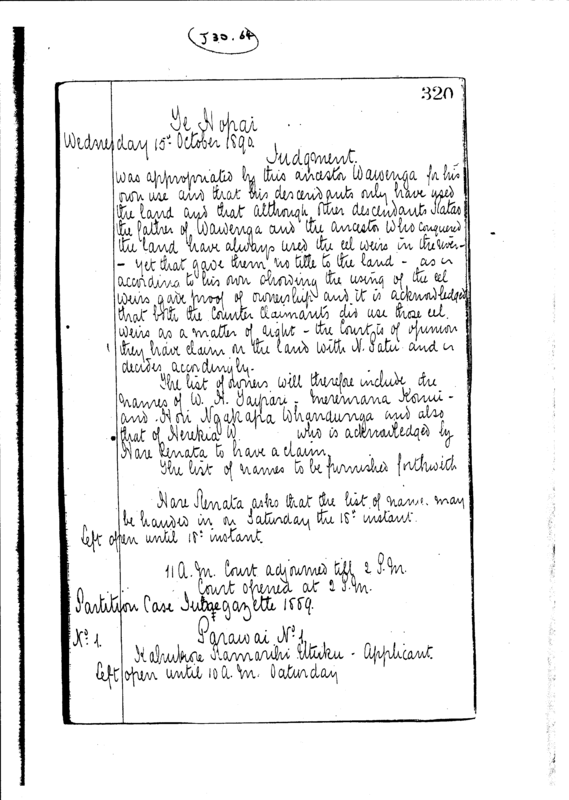 J 30. 64
320
Te Hopai
Wednesday 15th October 1890.
Judgment.
was appropriated by this ancestor Wawenga for his
own use and that his descendants only have used
the land and that although other descendants Natao
the father of Wawenga and the ancestor who conquered
the land have always used the eel weirs in the river -
- yet that gave them no title to the land - as
according to his own showing the using of the eel
weirs gave proof of ownership and it is acknowledged
that both the Counter Claimants did use those eel
weirs as a matter of right - the Court is of opinion
they have claim on the land with N. Patu and
decides accordingly.
The list of owners will therefore include the
names of W. H. Taipari - Meremana Konui -
and Hori Ngakapa Whanaunga and also
that of Herekia W. who is acknowledged by
Hare Renata to have a claim
The list of names to be furnished forthwith
Hare Renata asks that the list of names may
be handed in on Saturday the 18th instant.
Left open until 18th instant.
11 A.M. Court adjourned till 2 P.M.
Court opened at 2 P.M.
Partition Case gazette 1889.
No. 1. Parawai No. 1
Kamariki - Applicant.
Left open until 10 A.M. Saturday